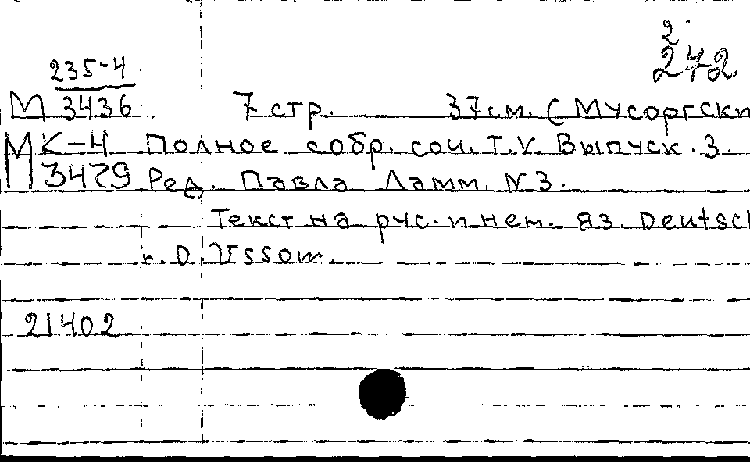 2
242
235-4
М 3436 7 стр. 37 см. (Мусоргски
М К-4 Полное собр. соч. Т. V. Выпуск. 3.
3479 Ред. Павла Ламм. N 3.
Текст на рус. и нем. яз. Deutsch
v. D. Ussow.
21402